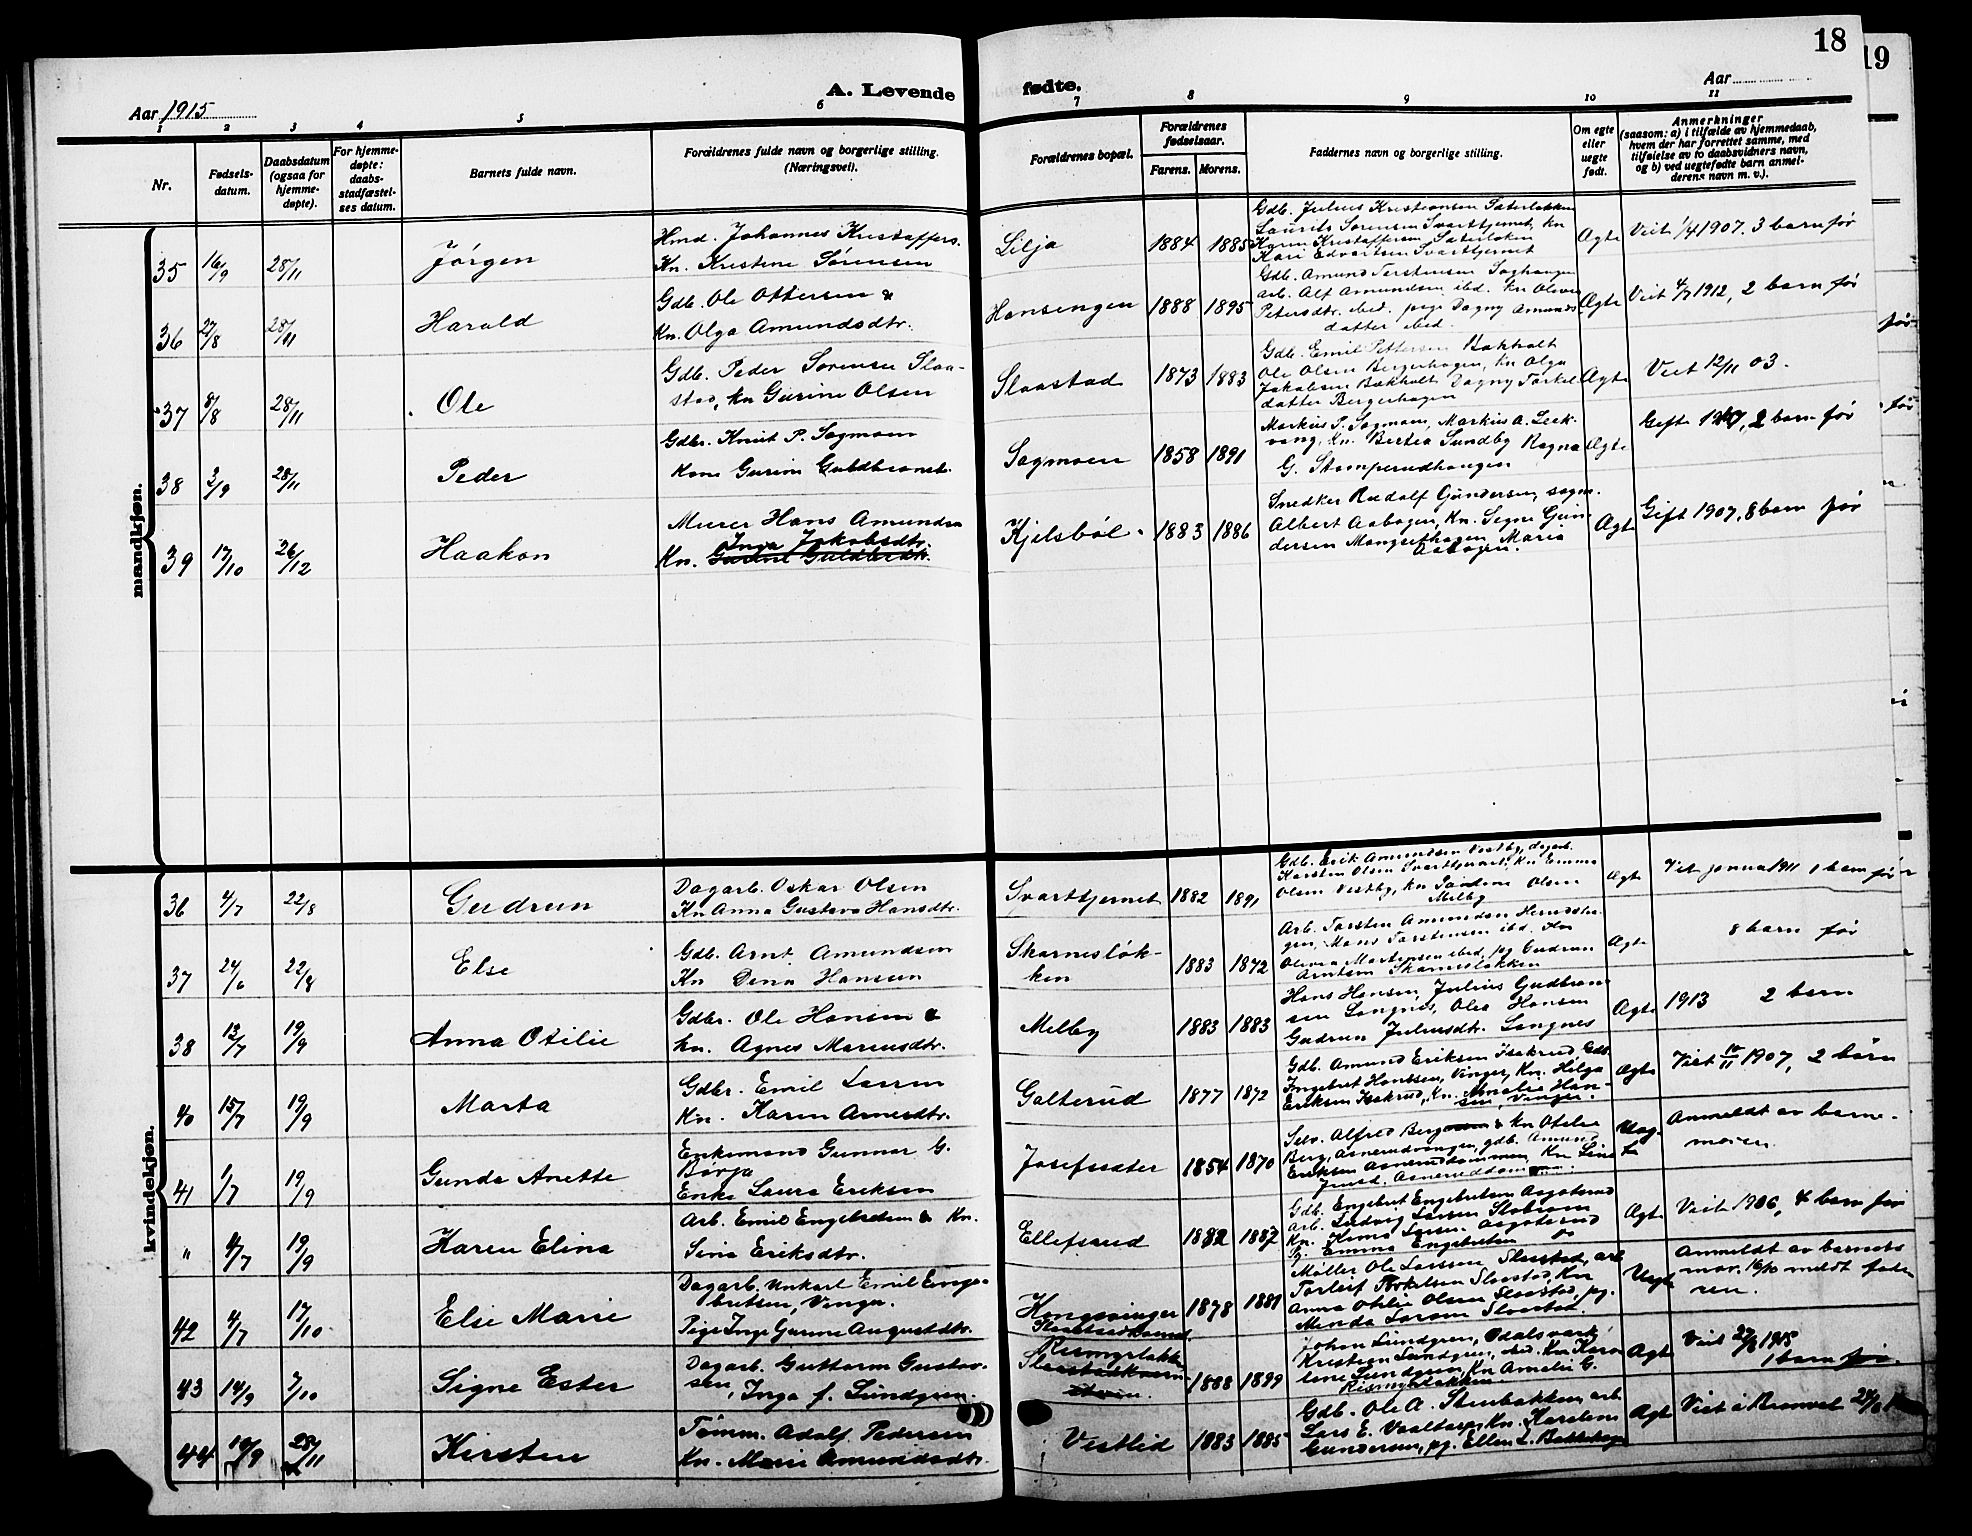 18
19
Aar 1915
A. Levende
fødte.
Aar
1 2 3 4 5 6 7 8 9 10 11
Nr.
Fødsels-
datum.
Daabsdatum
(ogsaa for
hjemme-
døpte).
For hjemme-
døpte:
daabs-
stadfæstel-
ses datum.
Barnets fulde navn.
Forældrenes fulde navn og borgerlige stilling.
(Næringsvei).
Forældrenes bopæl.
Forældrenes
fødselsaar.
Farens. Morens.
Faddernes navn og borgerlige stilling.
Om egte
eller
uegte
født.
Anmerkninger
(saasom: a) i tilfælde av hjemmedaab,
hvem der har forrettet samme, med
tilføielse av to daabsvidners navn,
og b) ved uegtefødte barn anmel-
derens navn m. v.).
mandkjøn.
35 16/9 28/11 Jørgen
Hmd. Johannes Kristoffers.
Kn. Kristine Sørensen
Lilja 1884 1885
Gdb. Julius Kristiansen Sæterløkken
Laurits Sørensen Svarttjernet, kn
Karen Kristoffersen Sæterløken
Kari Edvartsen Svarttjernet
Ægte Viet 1/4 1907. 3 barn før
36 27/8 28/11 Harald
Gdb. Ole Ottersen &
Kn. Olga Amundsdtr.
Hansengen 1888 1895
Gdb. Amund Torstensen Saghaugen
arb. Alf Amundsen ibd. kn Oliva
Petersdtr. ibd. pige Dagny Amunds
datter ibd.
Ægte Viet 4/7 1912, 2 barn før
37 8/8 28/11 Ole
Gdb. Peder Sørensen Slaa-
stad, kn Gurine Olsen
Slaastad 1873 1883
Gdb. Emil Pettersen Bækholt
Ole Olsen Bergerhagen, kn Olga
Jakobsen Bækholt Dagny Torkel
datter Bergerhagen
Ægte Viet 12/11 03.
38 2/9 28/11 Peder
Gdbr. Knut P. Sagmoen
Kone Gurine Guldbrandt.
Sagmoen 1858 1891
Markus P. Sagmoen, Markus A. Leek-
vang, Kn. Bertea Sundby Ragna
G. Stomperudhaugen
Ægte Gift 1907, 2 barn før
39 17/10 26/12 Haakon
Murer Hans Amundsen
Inga Jakobsdtr.
Kn. Gurine Guldbrdt.
Kjelsbøl 1883 1886
Snedker Rudolf Gundersen, sagm.
Albert Aabogen, Kn. Signe Gun
dersen Mangsethagen, Maria
Aabogen.
Ægte Gift 1907, 8 barn før
kvindekjøn.
36 4/7 22/8 Gudrun
Dagarb. Oskar Olsen
Kn Anna Gustava Hansdtr.
Svarttjernet 1882 1891
Gdb. Erik Amundsen Vestby, dagarb.
Karsten Olsen Svarttjernet, Kn Emma
Olsen Vestby, kn Olsen
Melby
Ægt Viet januar 1911 1 barn før
37 24/6 22/8 Else
Gdb. Arnt Amundsen
Kn Dina Hansen
Skarnesløk-
ken 1883 1872
Arb. Torsten Amundsen
gen, Hans Torstensen ibd. Kn
Olivia Martinsen ibd, pg Gudrun
Arntsen Skarnesløkken
Ægt 8 barn før
38 12/7 19/9 Anna Otilie
Gdbr. Ole Hansen &
kn. Agnes Mariusdtr.
Melby 1883 1883
Hans Hansen, Julius Gudbran
sen Langnes, Olea Hansen
Gudrun Juliusdt. Langnes
Ægte 1913 2 barn
40 15/7 19/9 Marta
Gdbr. Emil Larsen
Kn. Karen Arnesdtr.
Galterud 1877 1872
Gdb. Amund Eriksen Isakrud, Gdb.
Ingebret Hansen, Vinger, Kn. Helga
Eriksen Isakrud, Kn. Amalia Han-
sen, Vinger.
Ægte Viet 10/11 1907, 2 børn
41 1/7 19/9 Gunda Anette
Enkemand Gunnar G.
Børja
Enke Laura Eriksen
Josefsæter 1854 1870
Selv. Alfred Berg & Kn Otelia
Berg, Asnerudvangen, gdb. Amund
Eriksen Asneruddammen, Kn Lina
Juul, Asneruddammen.
Uæg-
te Anmeldt av barne-
moren.
" 4/7 19/9 Karen Elina
Arb. Emil Engebretsen & Kn.
Sina Eriksdtr.
Ellefsrud 1882 1887
Gdb. Engebret Engebretsen Aagoterud
arb. Ludvig Larsen Slobraen
Kn. Larsen Aagoterud
Pg. Emma Engebretsen do
Ægt Viet 1906, 4 barn før
42 4/7 17/10 Else Marie
Dagarb. Unkarl Emil Enge-
bretsen, Vinger.
Pige Inga Gurine Augustdtr.
Kongsvinger
1878 1881
Møller Ole Larsen Slaastad, arb
Torleif Torkelsen Slaastad, Kn
Anna Otilie Olsen Slaastad, pg.
Minda Larsen Slaastad.
Uegt Anmeldt av barnets
mor. 16/10 meldt fade
ren.
43 14/9 7/10 Signe Ester
Dagarb. Guttorm Gustav-
sen, Inga f. Lundgren.
Rismyrløkken
1888 1899
Johan Lundgren, Odalsverk,
Kristian Lundgren, ibd. Kn Karo
line Lundgren, Kn Amalie G.
Rismyrløkken
Ægt Viet 27/3 1915
1 barn før.
44 19/9 28/11 Kirsten
Tømm. Adolf Pedersen
Kn. Marie Amundsdtr.
Vestlid 1883 1885
Gdb. Ole A. Stenbakken, arb
Lars E. Vaaltorp, Kn. Karoline
Gundersen, pg. Ellen L. Bakkehagen
Ægt Viet i Brandval